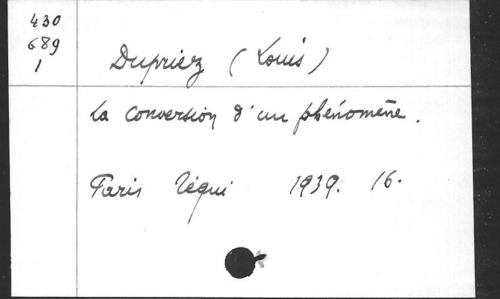 430
689
1
Dupriez (Louis)
La conversion d'un phénomène.
Paris Téqui 1939. 16.